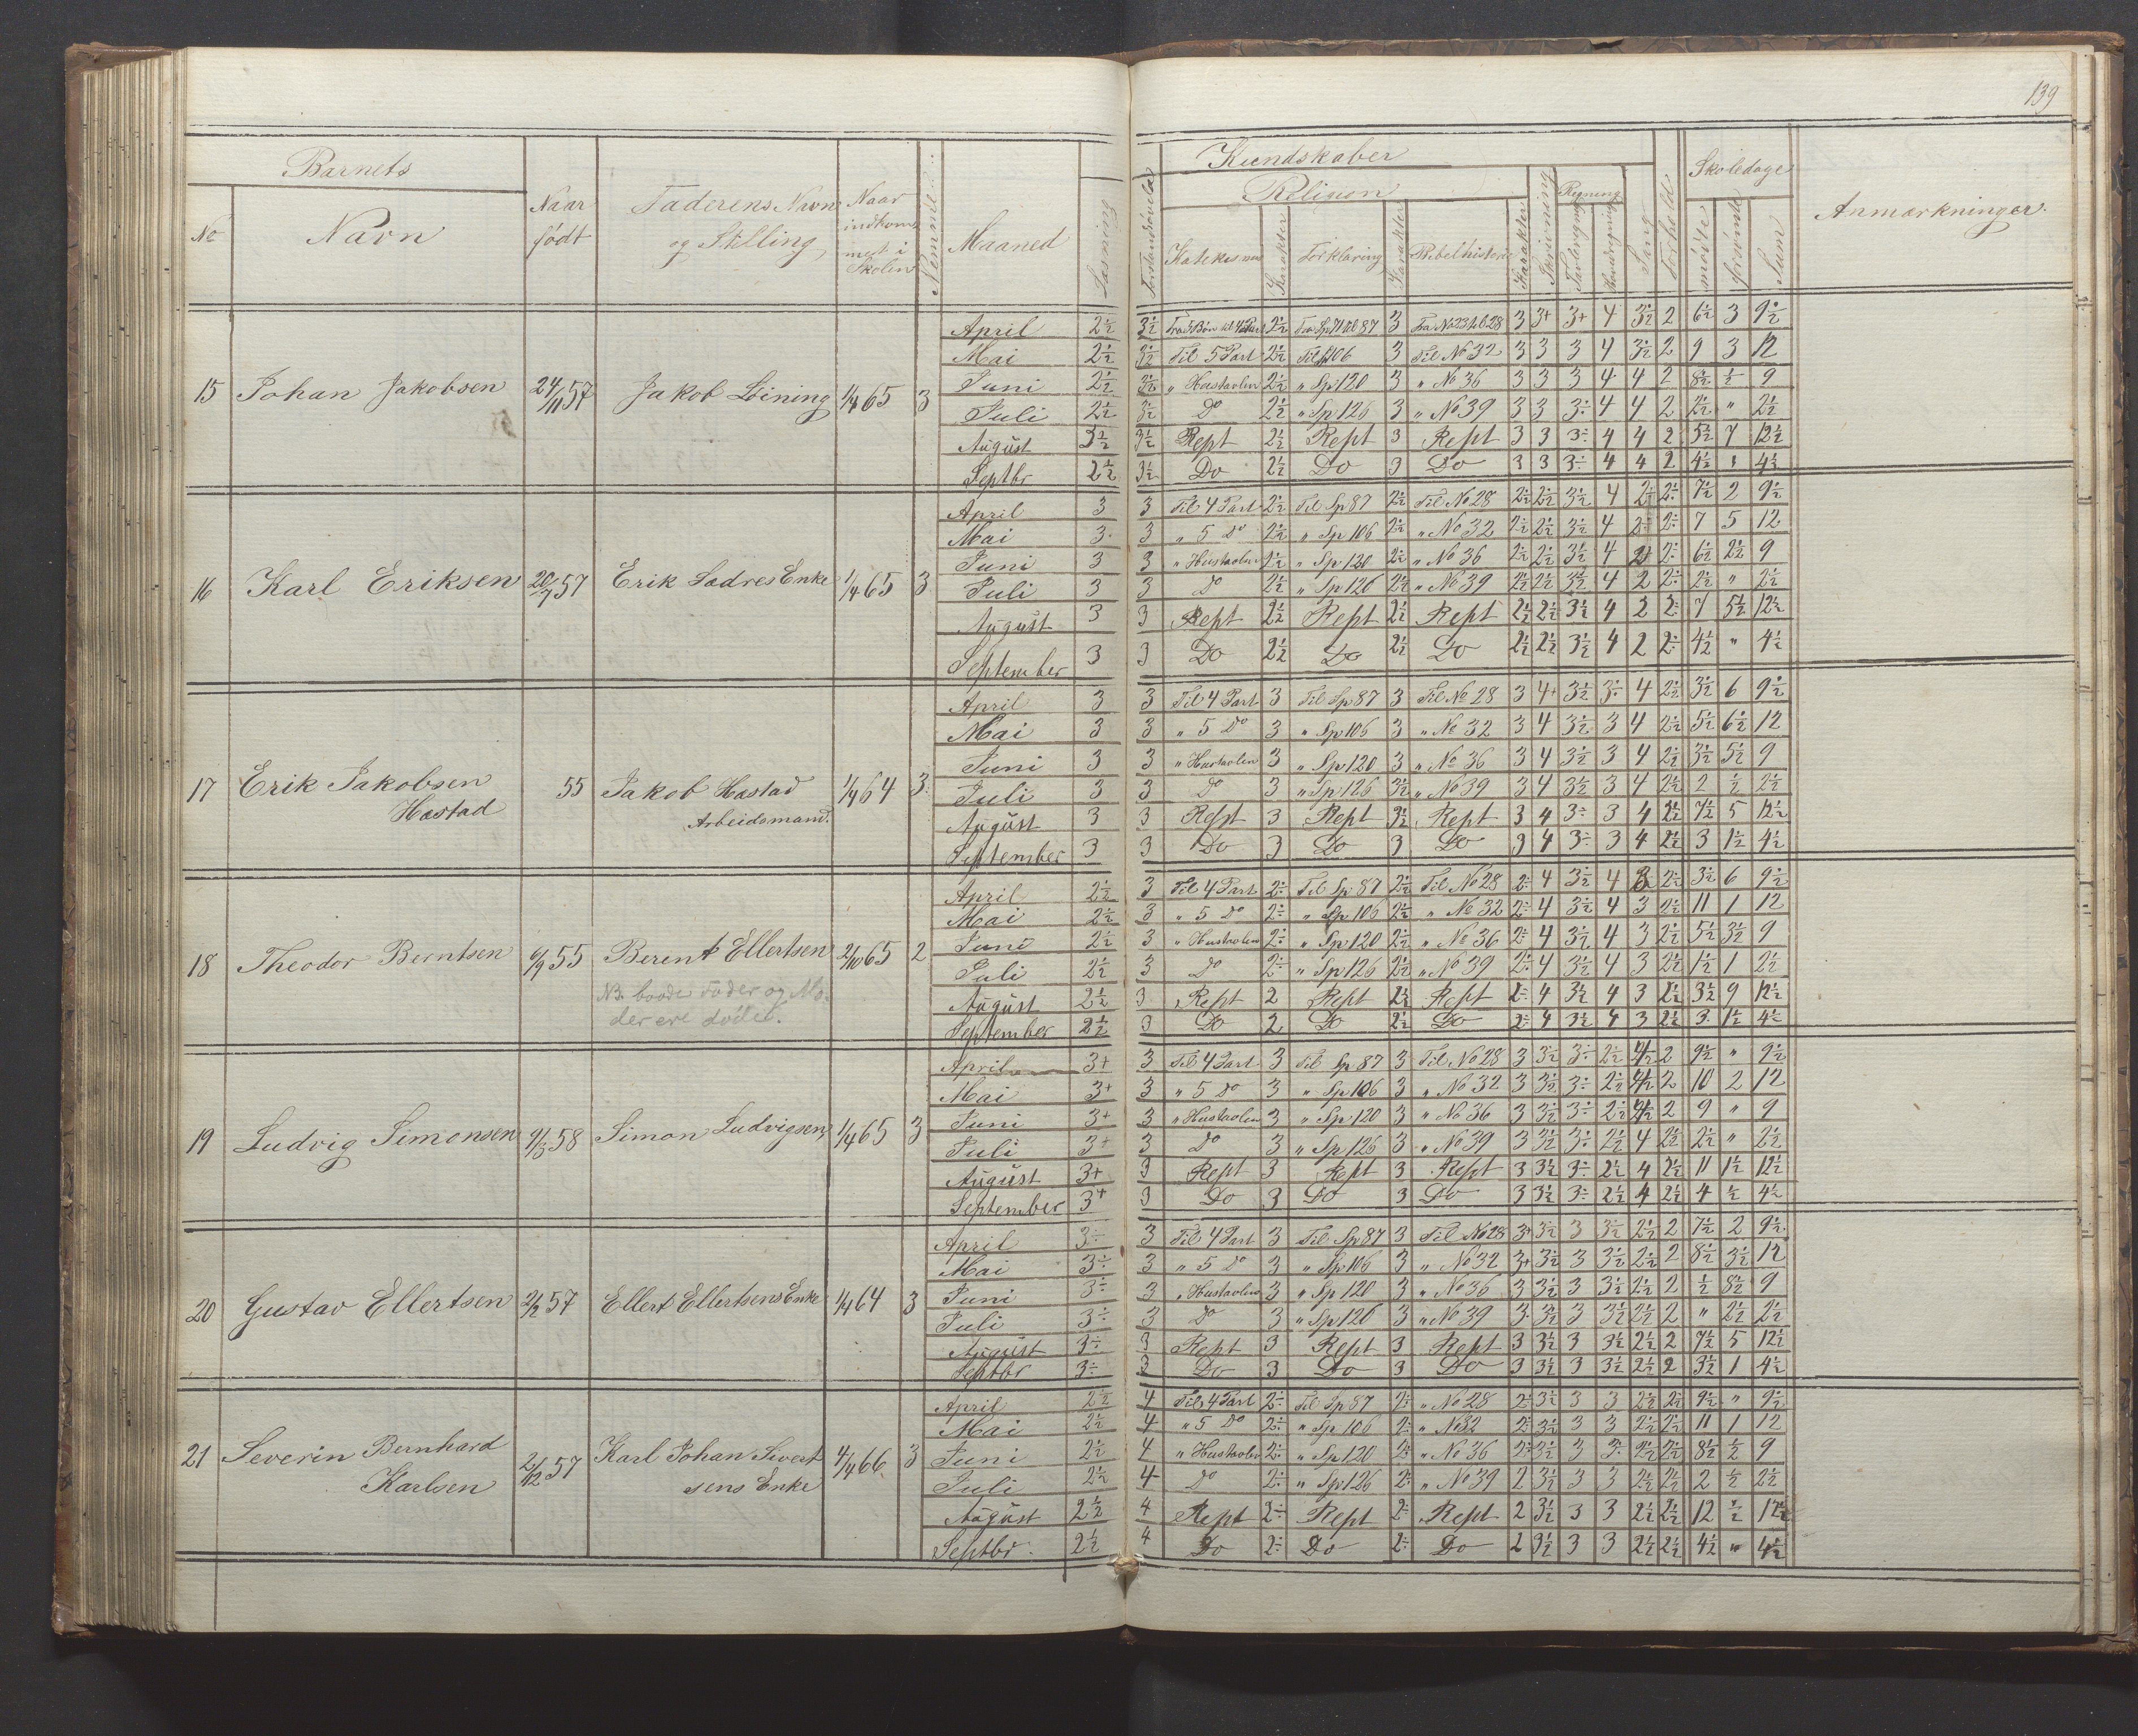 139
Barnets
No
Navn
Naar
født
Faderens Navn
og Stilling
Naar
indkom-
met i
Skolen
Nemme
Maaned
Læsning
Forstandsøvelse
Kundskaber
Religion
Katekismus
Karakter
Forklaring
Karakter
Bibelhistorie
Karakter
Skrivning
Regning
Tavleregning
Hovedregning
Sang
Forhold
Skoledage
mødte
forsømte
Sum
Anmærkninger.
15 Johan Jakobsen 24/11 57 Jakob Leining 1/4 65 3
April 2½ 3½ Fra 3 Bøn til 4 Part 2½ Fra Sp 71 til 87 3 Fra No 23 til 28 3 3+ 3+ 4 3½ 2 6½ 3 9½
Mai 2½ 3½ Til 5 Part 2½ Til Sp 106 3 Til No 32 3 3 3 4 3½ 2 9 3 12
Juni 2½ 3½ " Hustavlen 2½ " Sp 120 3 " No 36 3 3 3 4 4 2 8½ ½ 9
Juli 2½ 3½ Do 2½ " Sp 126 3 " No 39 3 3 3÷ 4 4 2 2½ " 2½
August 3½ 3½ Rept 2½ Rept 3 Rept 3 3 3÷ 4 4 2 5½ 7 12½
Septbr 2½ 3½ Do 2½ Do 3 Do 3 3 3÷ 4 4 2 4½ " 4½
16 Karl Eriksen 20/7 57 Erik Sadres Enke 1/4 65 3
April 3 3 Til 4 Part 2½ Til Sp 87 2½ Til No 28 2½ 2½ 3½ 4 2÷ 2÷ 7½ 2 9½
Mai 3 3 " 5 Do 2½ " Sp 106 2½ " No 32 2½ 2½ 3½ 4 2÷ 2÷ 7 5 12
Juni 3 3 " Hustavlen 2½ " Sp 120 2½ " No 36 2½ 2½ 3½ 4 2+ 2÷ 6½ 2½ 9
Juli 3 3 Do 2½ " Sp 126 2½ " No 39 2½ 2½ 3½ 4 2 2÷ 2½ " 2½
August 3 3 Rept 2½ Rept 2½ Rept 2½ 2½ 3½ 4 2 2÷ 7 5½ 12½
September 3 3 Do 2½ Do 2½ Do 2½ 2½ 3½ 4 2 2÷ 4½ " 4½
17 Erik Jakobsen
Hastad
55 Jakob Hastad
Arbeidsmand.
1/4 64 3
April 3 3 Til 4 Part 3 Til Sp 87 3 Til No 28 3 4+ 3½ 3÷ 4 2½ 3½ 6 9½
Mai 3 3 " 5 Do 3 " Sp 106 3 " No 32 3 4 3½ 3 4 2½ 5½ 6½ 12
Juni 3 3 " Hustavlen 3 " Sp 120 3 " No 36 3 4 3½ 3 4 2½ 3½ 5½ 9
Juli 3 3 Do 3 " Sp 126 3½ " No 39 3 4 3½ 3 4 2½ 2 ½ 2½
August 3 3 Rept 3 Rept 3½ Rept 3 4 3÷ 3 4 2½ 7½ 5 12½
September 3 3 Do 3 Do 3 Do 3 4 3÷ 3 4 2½ 3 1½ 4½
18 Theodor Berntsen 6/9 55 Berent Ellertsen 2/10 65 2
NB. baade Fader og Mo-
der ere døde.
April 2½ 3 Til 4 Part 2÷ Til Sp 87 2½ Til No 28 2÷ 4 3½ 4 3 2½ 3½ 6 9½
Mai 2½ 3 " 5 Do 2÷ " Sp 106 2½ " No 32 2÷ 4 3½ 4 3 2½ 11 1 12
Juni 2½ 3 " Hustavlen 2÷ " Sp 120 2½ " No 36 2÷ 4 3½ 4 3 2½ 5½ 3½ 9
Juli 2½ 3 Do 2÷ " Sp 126 2½ " No 39 2÷ 4 3½ 4 3 2½ 1½ 1 2½
August 2½ 3 Rept 2 Rept 2½ Rept 2÷ 4 3½ 4 3 2½ 3½ 9 12½
September 2½ 3 Do 2 Do 2½ Do 2÷ 4 3½ 4 3 2½ 3 1½ 4½
19 Ludvig Simonsen 9/3 58 Simon Ludvigsen 1/4 65 3
April 3+ 3 Til 4 Part 3 Til Sp 87 3 Til No 28 3 3½ 3÷ 2½ 4½ 2 9½ " 9½
Mai 3+ 3 " 5 Do 3 " Sp 106 3 " No 32 3 3½ 3÷ 2½ 4½ 2 10 2 12
Juni 3+ 3 " Hustavlen 3 " Sp 120 3 " No 36 3 3½ 3÷ 2½ 4½ 2 9 " 9
Juli 3+ 3 Do 3 " Sp 126 3 " No 39 3 3½ 3÷ 2½ 4 2½ 2½ " 2½
August 3+ 3 Rept 3 Rept 3 Rept 3 3½ 3÷ 2½ 4 2½ 11 1½ 12½
September 3+ 3 Do 3 Do 3 Do 3 3½ 3÷ 2½ 4 2½ 4 ½ 4½
20 Gustav Ellertsen 2/2 57 Ellert Ellertsens Enke 1/4 64 3
April 3÷ 3 Til 4 Part 3 Til Sp 87 3 Til No 28 3+ 3½ 3 3½ 2½ 2 7½ 2 9½
Mai 3÷ 3 " 5 Do 3 " Sp 106 3 " No 32 3+ 3½ 3 3½ 2½ 2 8½ 3½ 12
Juni 3÷ 3 " Hustavlen 3 " Sp 120 3 " No 36 3 3½ 3 3½ 2½ 2 ½ 8½ 9
Juli 3÷ 3 Do 3 " Sp 126 3 " No 39 3 3½ 3 3½ 2½ 2 " 2½ 2½
August 3÷ 3 Rept 3 Rept 3 Rept 3 3½ 3 3½ 2½ 2 7½ 5 12½
Septbr 3÷ 3 Do 3 Do 3 Do 3 3½ 3 3½ 2½ 2 3½ 1 4½
21 Severin Bernhard
Karlsen
2/12 57 Karl Johan Sivert
sens Enke
4/4 66 3
April 2½ 4 Til 4 Part 2÷ Til Sp 87 2÷ " No 28 2÷ 3½ 3 3 2½ 2½ 9½ " 9½
Mai 2½ 4 " 5 Do 2÷ " Sp 106 2÷ " No 32 2÷ 3½ 3 3 2½ 2½ 11 1 12
Juni 2½ 4 " Hustavlen 2÷ " Sp 120 2÷ " No 36 2÷ 3½ 3 3 2½ 2½ 8½ ½ 9
Juli 2½ 4 Do 2÷ " Sp 126 2÷ " No 39 2 3½ 3 3 2½ 2½ 2 ½ 2½
August 2½ 4 Rept 2÷ Rept 2÷ Rept 2 3½ 3 3 2½ 2½ 12 ½ 12½
Septbr. 2½ 4 Do 2÷ Do 2÷ Do 2 3½ 3 3 2½ 2½ 4½ " 4½